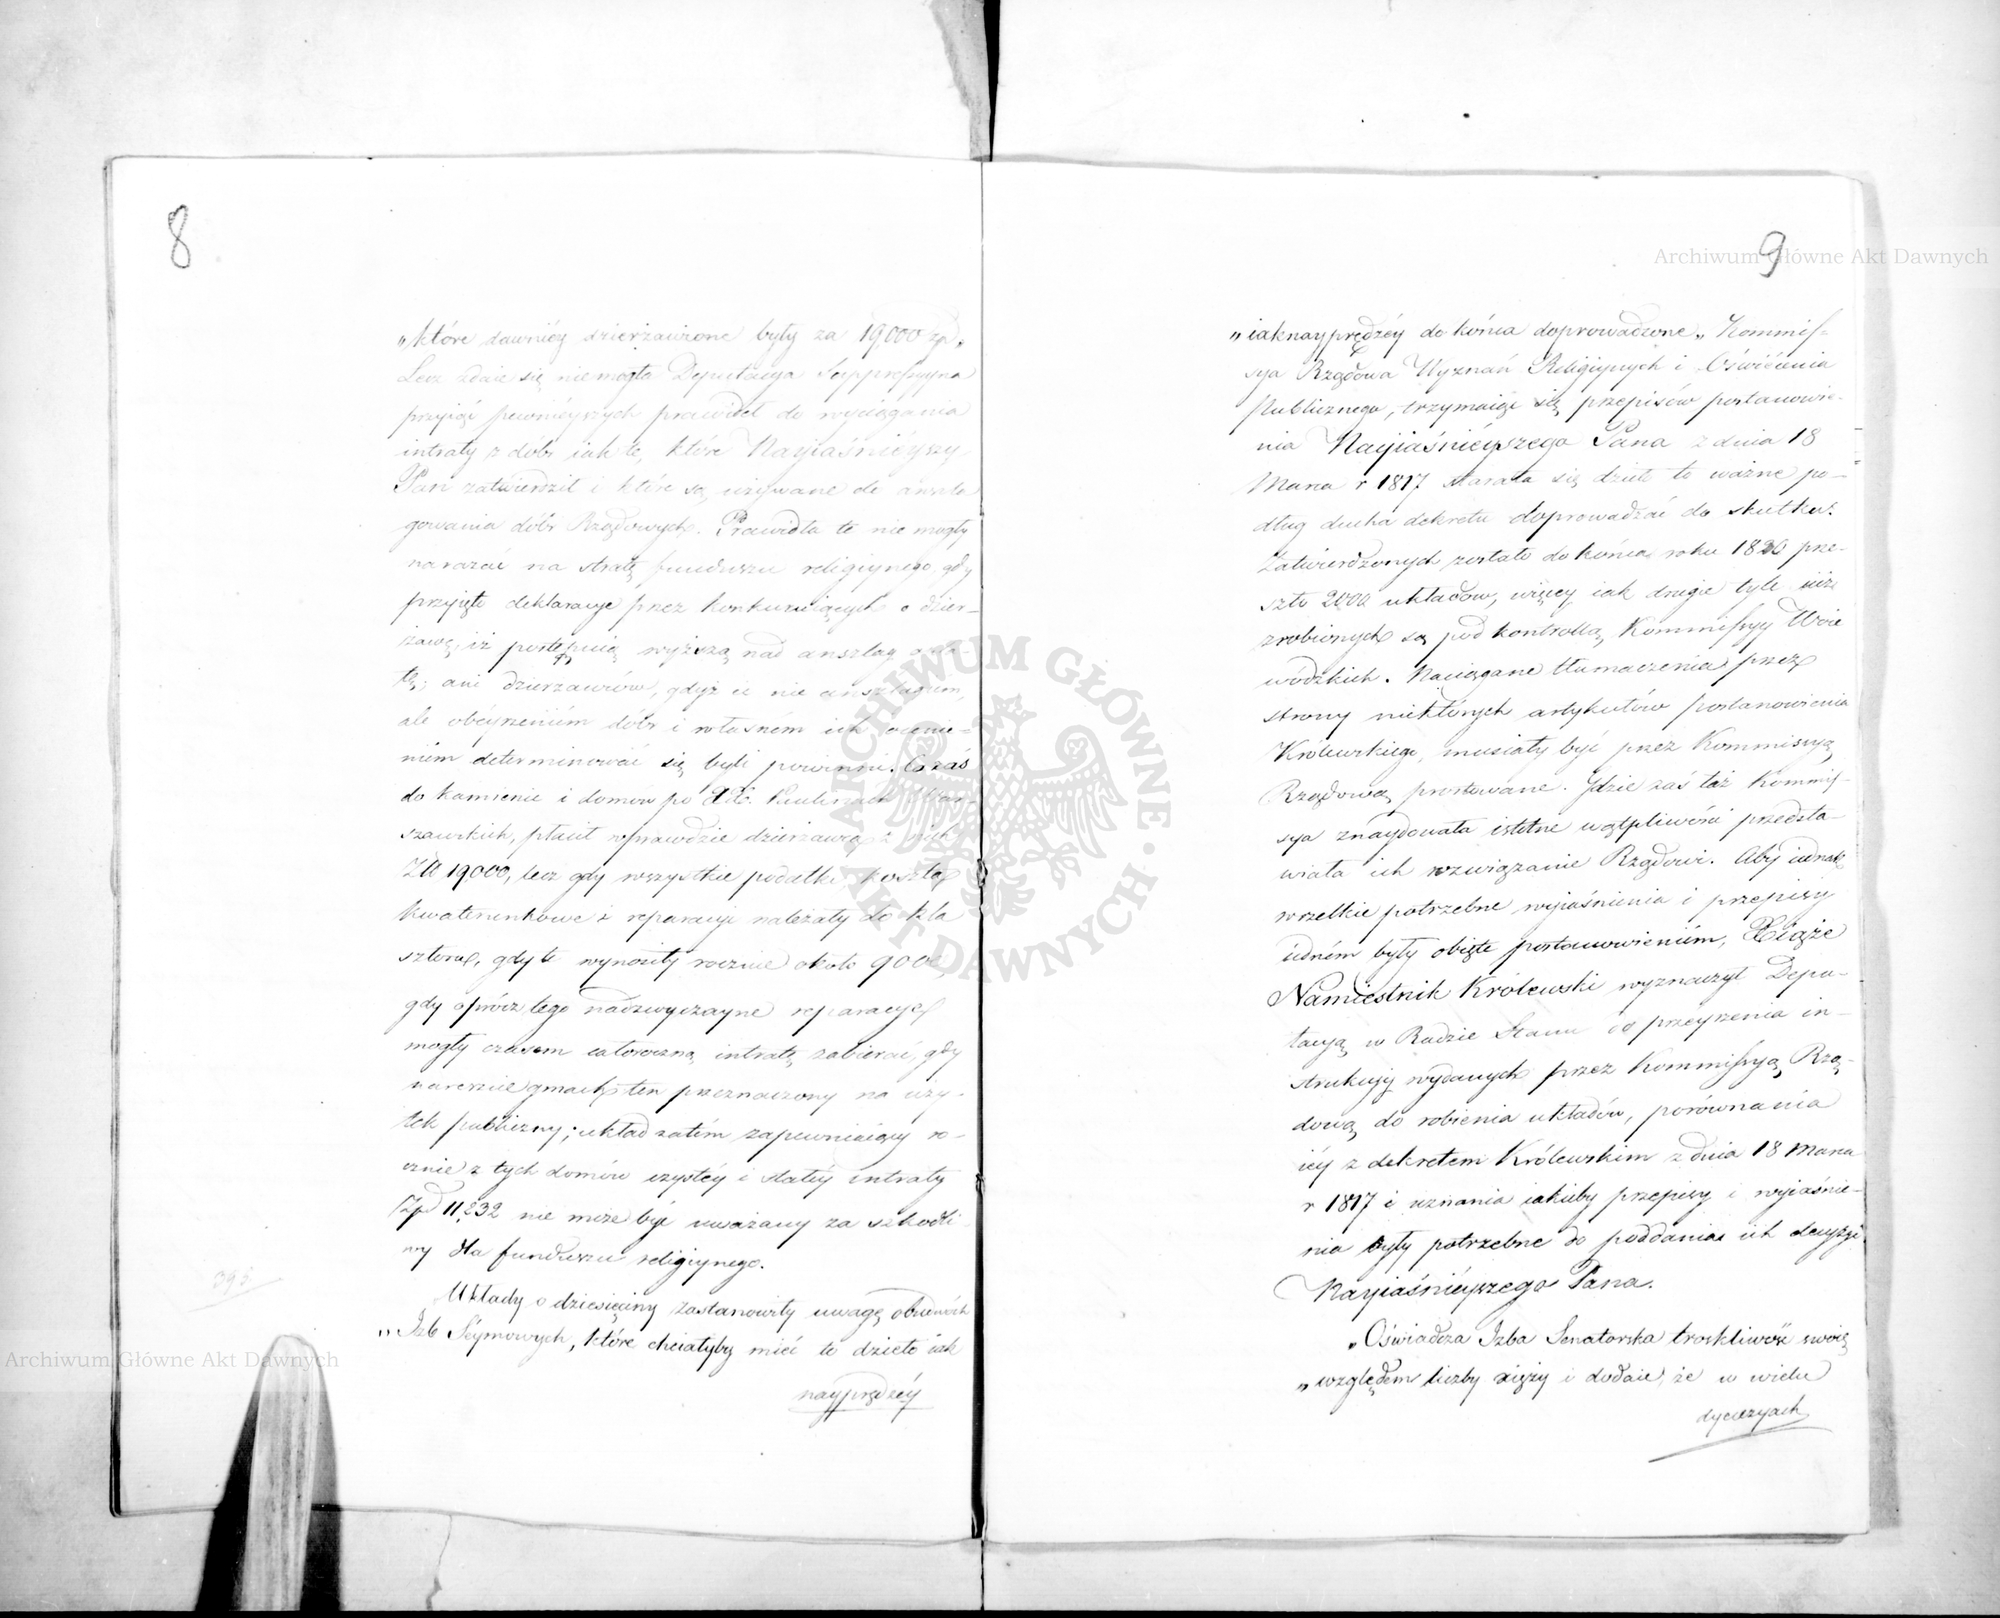 8
„które dawniéy dzierżawione były za 19,000 zp„
Lecz zdaie się nie mogła Deputacya Suppressyyna
przyiąć pewniéyszych prawideł do wyciągania
intraty z dóbr iak te, które Nayiaśniéyszy
Pan zatwierdził i które są używane do anszla
gowania dóbr Rządowych. Prawidła te nie mogły
narazić na stratę funduszu religiynego, gdy
przyięto deklaracye przez konkuruiących o dzier-
żawę, iż postąpią wyższą nad anszlag opła-
tę; ani dzierżawców, gdyż ci nie anszlagiem,
ale obeyrzeniem dóbr i własném ich ocenie-
niem determinować się byli powinni. Co zaś
do kamienic i domów po XX. Paulinach War-
szawskich, płacił wprawdzie dzierżawca z nich
Zł 19,000, lecz gdy wszystkie podatki, koszta
kwaterunkowe i reparacye należały do kla
sztoru, gdy te wynosiły rocznie około 9000,
gdy oprócz tego nadzwyczayne reparacye
mogły czasem całoroczną intratę zabierać, gdy
nareszcie gmach ten przeznaczony na uży-
tek publiczny; układ zatém zapewniaiący ro-
cznie z tych domów czystéy i stałéy intraty
Zp 11,232 nie może być uważany za szkodli
wy dla funduszu religiynego.
Układy o dziesięciny zastanowiły uwagę obudwóch
„Izb Séymowych, które chciałyby mieć to dzieło iak
nayprędzéy
393
9
„iaknayprędzéy do końca doprowadzone„ Kommis-
sya Rządowa Wyznań Religiynych i Oświécenia
Publicznego, trzymaiąc się przepisów postanowie-
nia Nayiaśniéyszego Pana z dnia 18
Marca r 1817 starała się dzieło to ważne po-
dług ducha dekretu doprowadzać do skutku.
Zatwierdzonych zostało do końca roku 1820 prze-
szło 2000 układów, więcéy iak drugie tyle iuż
zrobionych są pod kontrollą Kommissyy Woie
wódzkich. Naciągane tłumaczenia przez
strony niektórych artykułów postanowienia
Królewskiego, musiały być przez Kommissyą
Rządową prostowane. Gdzie zaś taż Kommis-
sya znaydowała istotne wątpliwości przedsta-
wiała ich rozwiązanie Rządowi. Aby iednak
wszelkie potrzebne wyiaśnienia i przepisy
iedném były obięte postanowieniém, Xiąże
Namiestnik Królewski wyznaczył Depu-
tacyą w Radzie Stanu do przeyrzenia in-
strukcyy wydanych przez Kommissyą Rzą-
dową do robienia układów, porównania
iéy z dekretem Królewskim z dnia 18 Marca
r 1817 i uznania iakieby przepisy i wyiaśnie-
nia były potrzebne do poddania ich decyzyi
Nayiaśniéyszego Pana.
„Oświadcza Izba Senatorska troskliwość swoię
„względem liczby xięży i dodaie, że w wielu
dyecezyach
Archiwum Główne Akt Dawnych
Archiwum Główne Akt Dawnych
ARCHIWUM GŁÓWNE AKT DAWNYCH